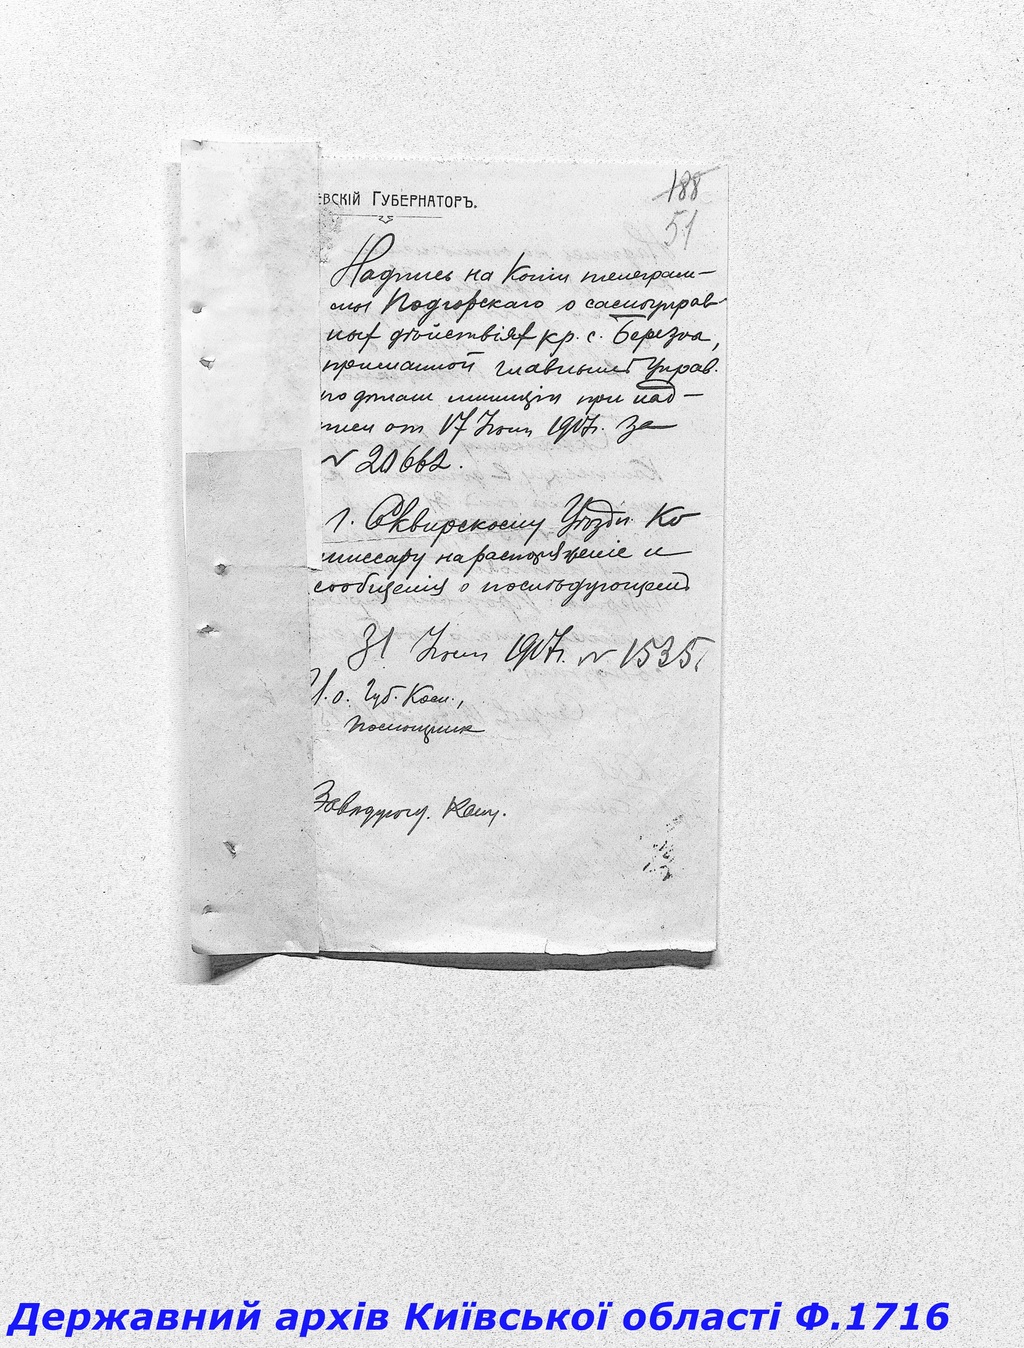 ЕВСКІЙ ГУБЕРНАТОРЪ.
188
51
Надпись на копіи телеграм-
мы Подгорскаго о самоуправ
ныхъ дѣйствіяхъ кр. с. Березна,
присланной главнымъ Управ.
по дѣлам милиціи при над-
писи от 17 Іюня 1917г. за
№ 20662.
1. Сквирскому Уѣздн. Ко
миссару на распоряженіе и
сообщенія о послѣдующемъ
31 Іюля 1917г. № 1535.
И. о. Губ. Ком.,
Помощник
Завѣдующ. Канц.
Державний архів Київської області Ф.1716